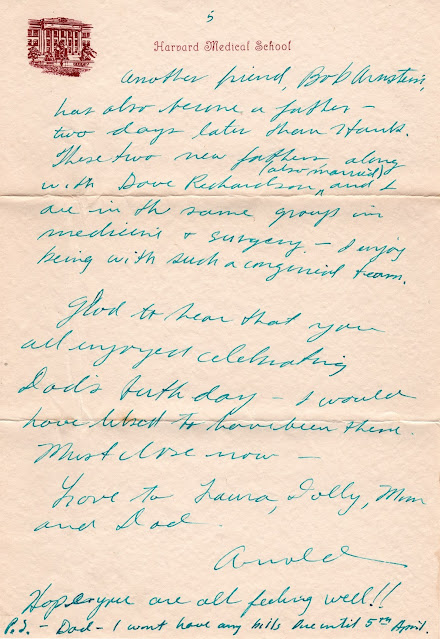 5
Harvard Medical School
Another friend, Bob Arnstein,
has also become a father –
two days later than Hank.
These two new fathers, along
with Dave Richardson (also married), and I
are in the same group in
medicine & surgery – I enjoy
being with such a congenial team.
Glad to hear that you
all enjoyed celebrating
Dad's birthday – I would
have liked to have been there.
Must close now –
Love to Laura, Dolly, Mom
and Dad.
Arnold
Hope you are all feeling well!!
P.S. – Dad – I wont have any bills due until 5th April.